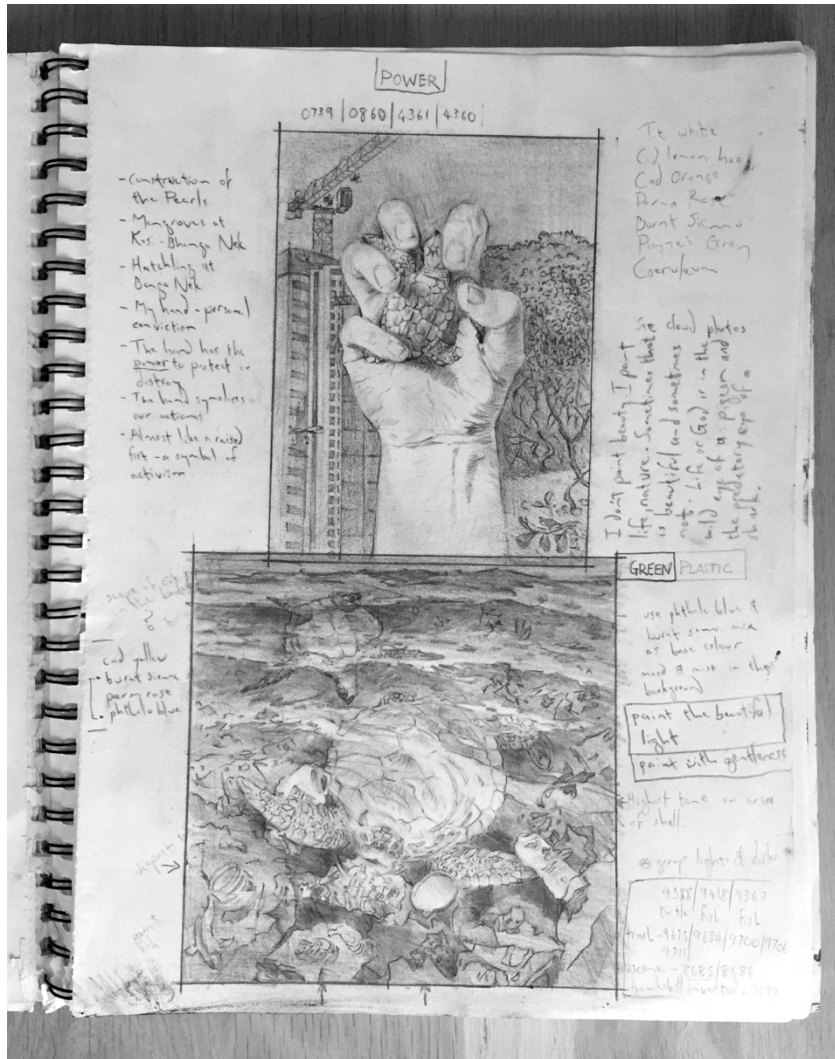 POWER
0739 | 0860 | 4361 | 4360
- Construction of
the Pearls
- Mangroves at
Kosi - Bhanga Nek
- Hatchling at
Banga Nek
- My hand - personal
conviction
- The hand has the
power to protect or
distroy
- The hand symolises
our actions
- Almost like a raised
fist - a symbol of
activism
Tit white
Cad lemon hue
Cad Orange
Perma Rose
Burnt Sienna
Payne's Grey
Coeruleum
See cloud photos
I don't paint beauty, I paint
life, nature. Sometimes that
is beautiful and sometimes
not. Life or God is in the
wild eye of a pigeon and
the predatory eye of a
shark.
GREEN PLASTIC
?
cad yellow
burnt sienna
perm rose
phthalo blue
use phthalo blue &
burnt
as base colour
mood & mist in the
background
paint the beautiful
light
paint with gentleness
Highest tone on area
of shell.
group lights & darks
9388/9418/9367
turtle fish fish
trash - 9673/9684/9700/9706
scene - 8685/8686